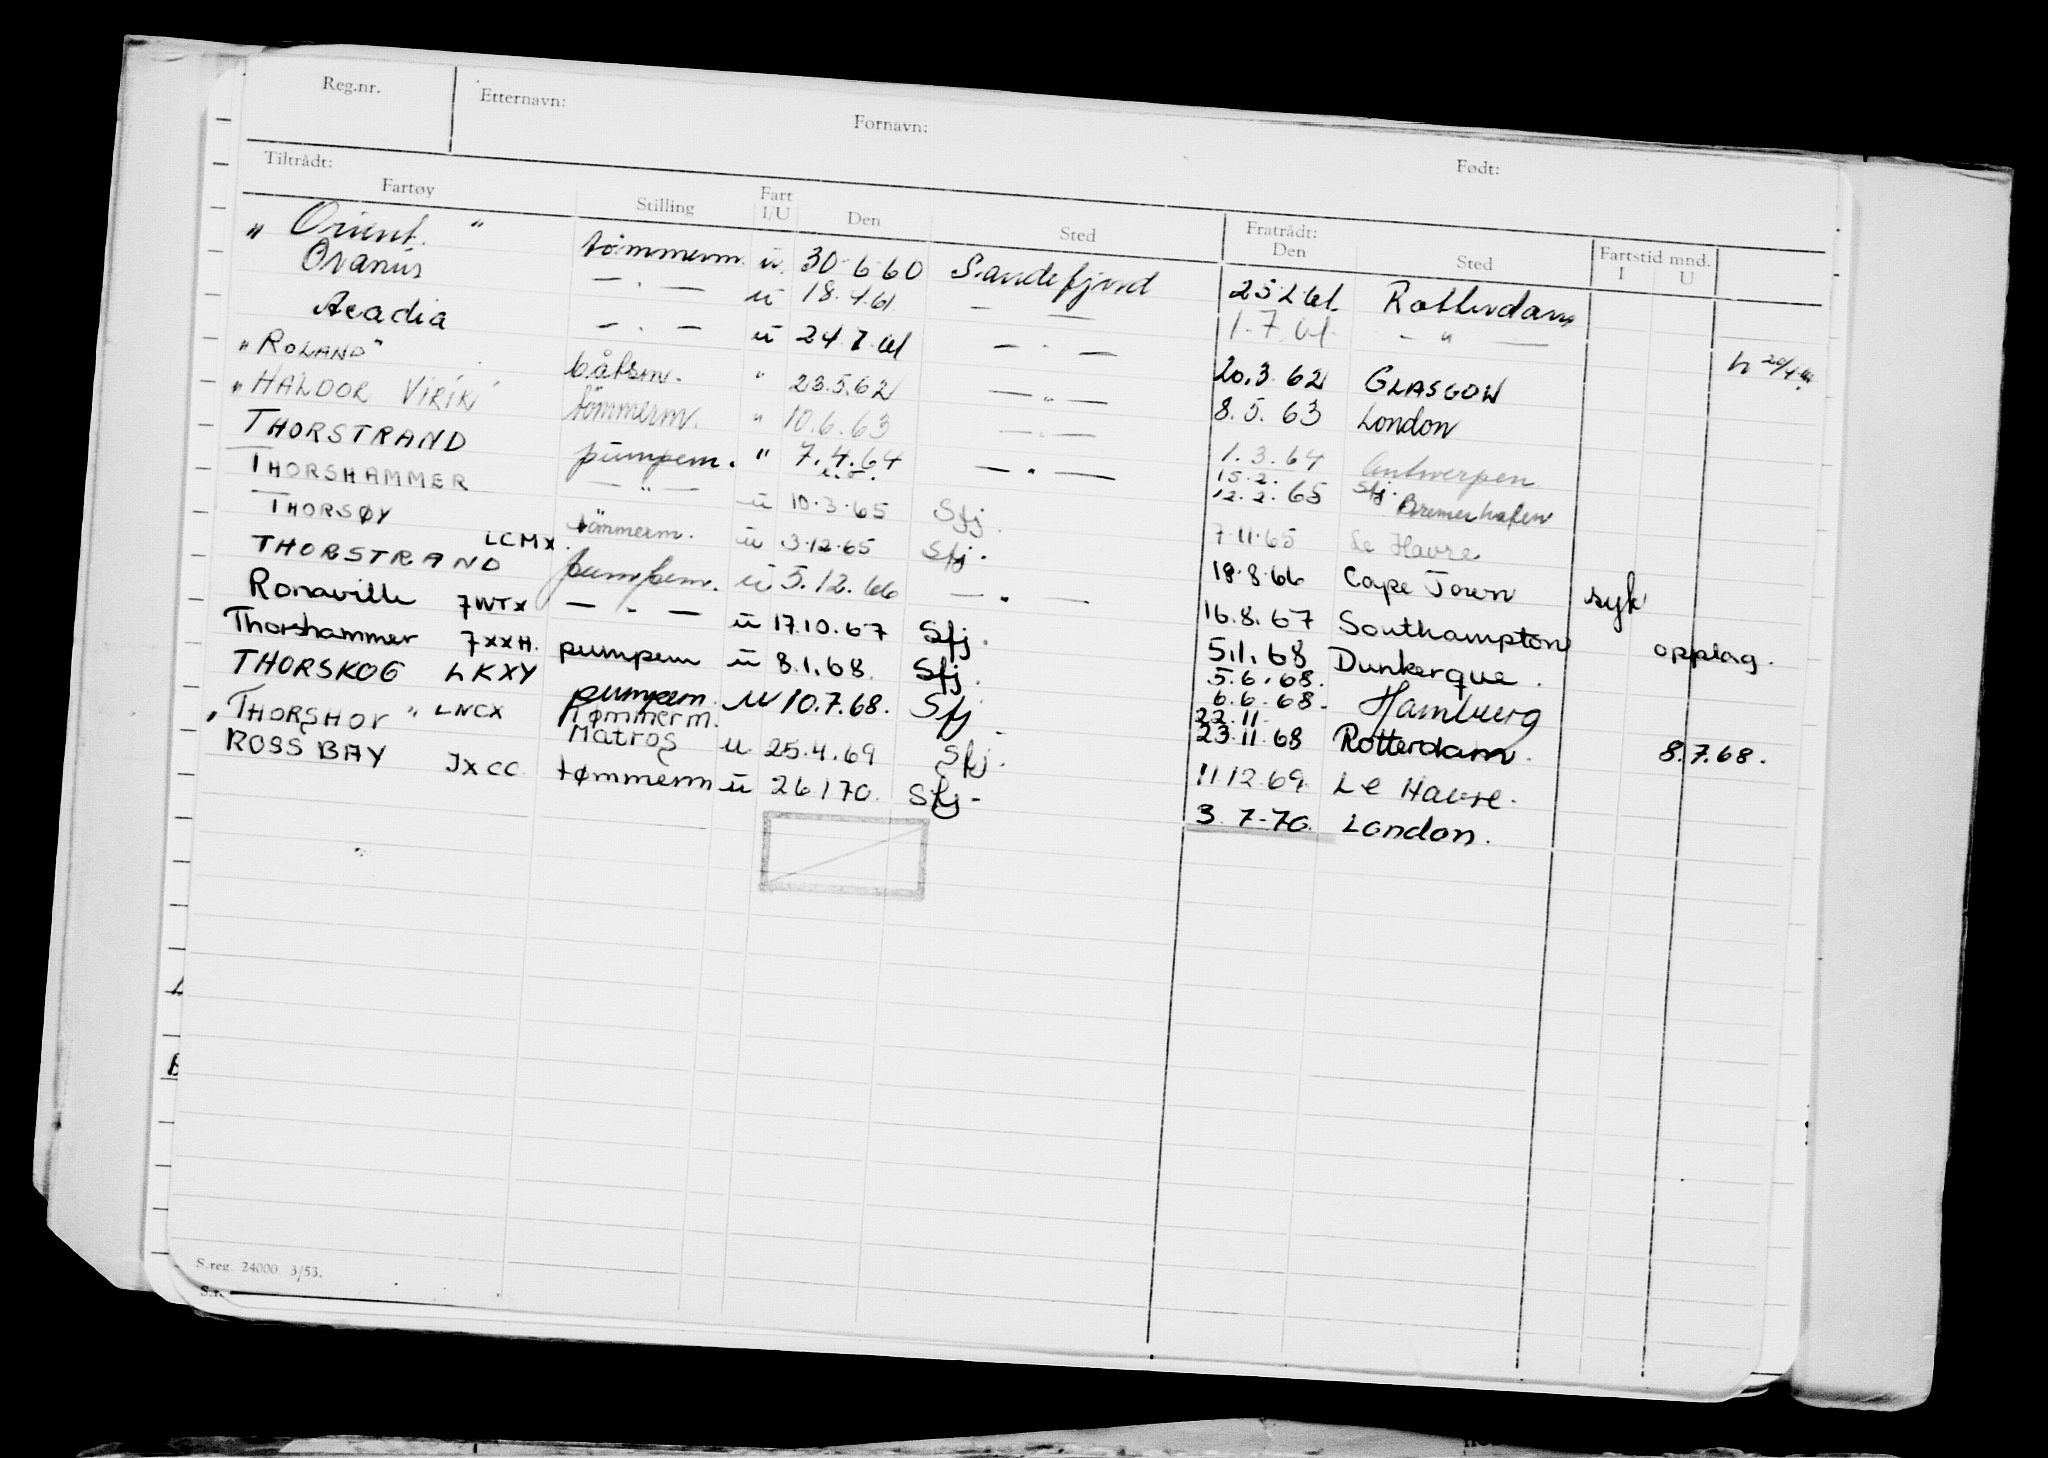 Reg.nr. Etternavn: Fornavn: Født:
Tiltrådt: Fratrådt: Fartstid mnd.
Fartøy Stilling Fart I/U Den Sted Den Sted I U
„ Orient. " tømmerm. u. 30.6.60 Sandefjord 25.2.61. Rotterdam
Oranis — . — u 18.4.61 — — 1.7.61. — " —
Acadia — . — u 24.7.61 — . — 20.3.62 GLASGOW
„ROLAND" båtsm. " 23.5.62 — „ — 8.5.63 London
„HALDOR VIRIK" tömmerm. " 10.6.63 — . — 1.3.64 Antwerpen
THORSTRAND pumpem. " 7.4.64 — " — 15.2. Sfj.
12.2.65 Bremerhafen
THORSHAMMER — " — u 10.3.65 Sfj. 7.11.65 Le Havre
THORSØY tömmerm. u 3.12.65 Sfj. 18.8.66 Cape Town syk
THORSTRAND LCMX. pumpem. u 5.12.66 — " — 16.8.67 Southampton opplag.
Ronaville 7WTX — " — u 17.10.67 Sfj. 5.1.68 Dunkerque.
Thorshammer 7XXH. pumpem u 8.1.68. Sfj. 5.6.68.
6.6.68. Hamburg
THORSKOG LKXY pumpem. u 10.7.68. Sfj 22.11.
23.11.68 Rotterdam. 8.7.68.
„THORSHOV" LNCX tømmerm.
Matros u 25.4.69 Sfj. 11.12.69. Le Havre.
ROSS BAY JXCC tømmerm u 26 1 70. Sfj- 3.7-70. London.
S.reg. 24000. 3/53.